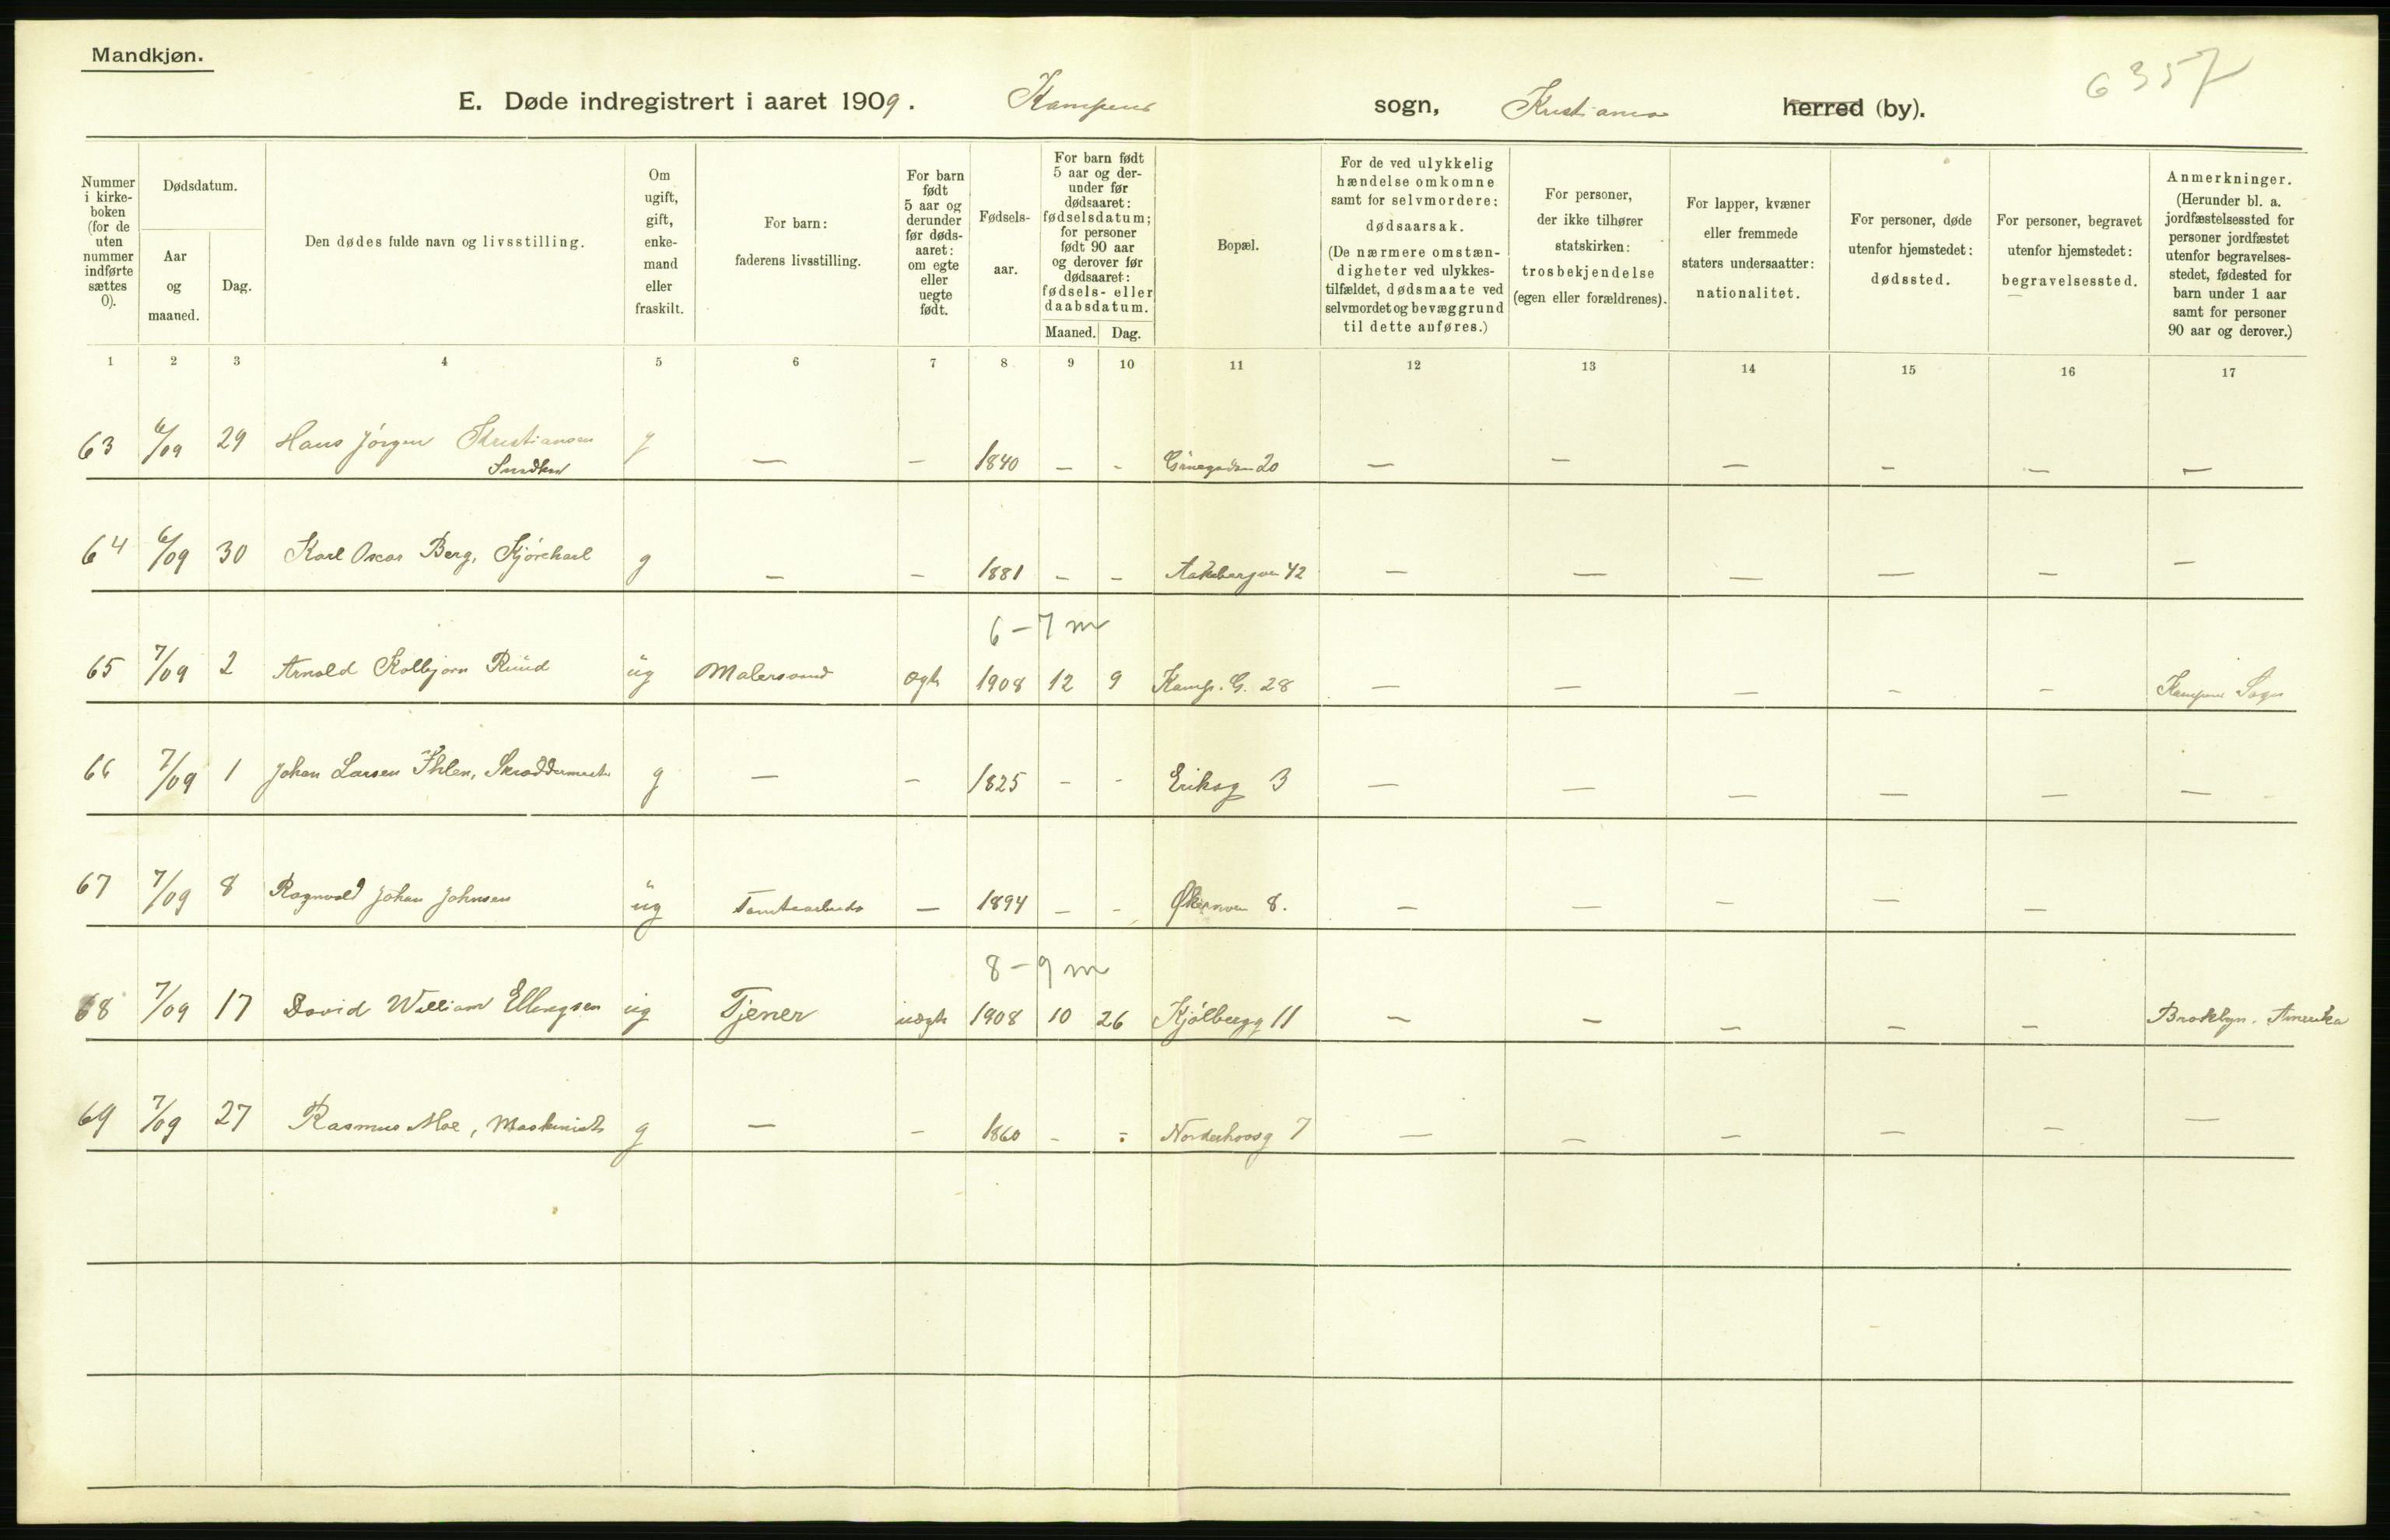 Mandkjøn.
6357
E. Døde indregistrert i aaret 1909. Kampens sogn, Kristiania herred (by).
Nummer i kirke-boken (for de uten nummer indførte sættes 0).
Dødsdatum.
Aar og maaned.
Dag.
Den dødes fulde navn og livsstilling.
Om ugift, gift, enke-mand eller fraskilt.
For barn: faderens livsstilling.
For barn født 5 aar og derunder før døds-aaret: om egte eller uegte født.
Fødsels-aar.
For barn født 5 aar og der-under før dødsaaret: fødselsdatum; for personer født 90 aar og derover før dødsaaret: fødsels- eller daabsdatum.
Maaned.
Dag.
Bopæl.
For de ved ulykkelig hændelse omkomne samt for selvmordere: dødsaarsak. (De nærmere omstæn-digheter ved ulykkes-tilfældet, dødsmaate ved selvmordet og bevæggrund til dette anføres.)
For personer, der ikke tilhører statskirken: trosbekjendelse (egen eller forældrenes).
For lapper, kvæner eller fremmede staters undersaatter: nationalitet.
For personer, døde utenfor hjemstedet: dødssted.
For personer, begravet utenfor hjemstedet: begravelsessted.
Anmerkninger. (Herunder bl. a. jordfæstelsessted for personer jordfæstet utenfor begravelses-stedet, fødested for barn under 1 aar samt for personer 90 aar og derover.)
1 2 3 4 5 6 7 8 9 10 11 12 13 14 15 16 17
63 6/09 29 Hans Jörgen Kristiansen g — — 1840 — - 20 — — — — — —
Snedker
64 6/09 30 Karl Oscar Berg, Kjörekarl g — — 1881 — — Aakebergvn 42 — — — — — —
6-7 m
65 7/09 2 Arnold Kolbjørn Ruud ug Malersvend ægte 1908 12 9 Kamp. G. 28 — — — — — Kampens Sogn
66 7/09 1 Johan Larsen Ihlen, Skræddermester g — — 1825 - - Eriksg 3 — — — — — —
67 7/09 8 Ragnvald Johan Johnsen ug Tomtearbeider — 1894 — - Økernvn 8. — — — — —
8-9 m
68 7/09 17 David William Ellingsen ug Tjener uægte 1908 10 26 Kjölbergg 11 — — — — — Broklyn. Amerika
69 7/09 27 Rasmus Moe, Maskinist g — — 1860 - - Norderhovsg 7 — — — — — —